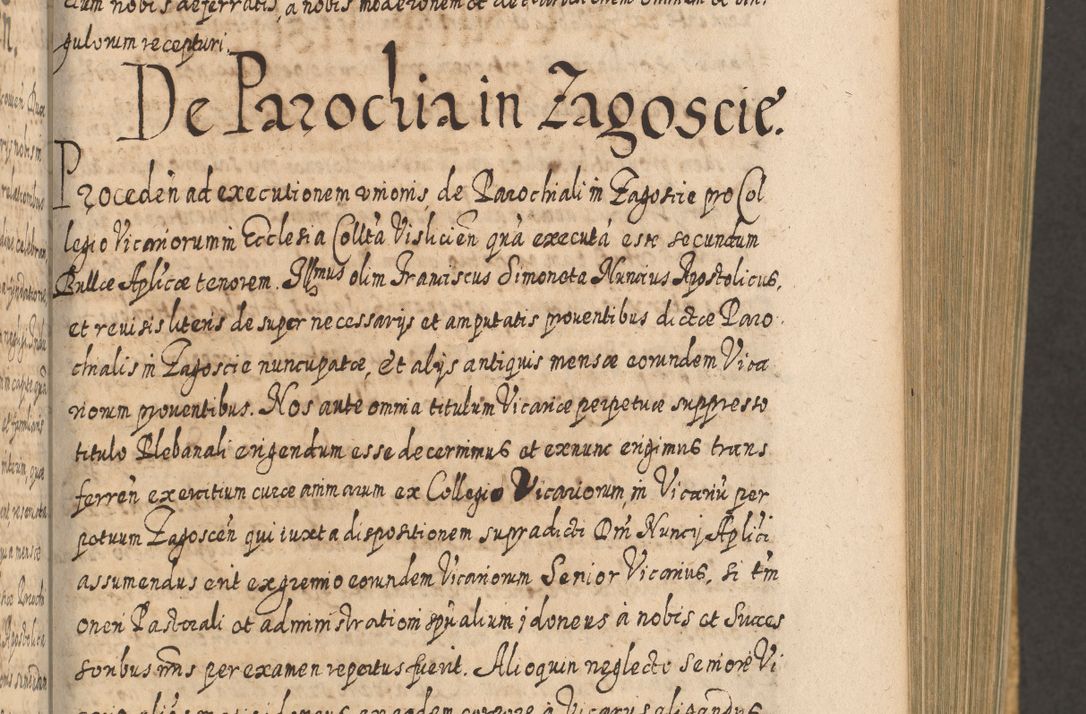 gulorum recepturi.
De Parochia in Zagoscie.
Proceden ad executionem unionis de Parochiali in Zagoscie pro Col
legio Vicariorum in Ecclesia Collta Vislicien qua executa est secundum
Bullæ Aplicæ tenorem. Illmus olim Franciscus Simoneta Nuncius Apostolicus,
et reuisis literis desuper necessarijs et amputatis prouentibus dictæ Paro
chialis in Zagoscie nuncupatæ, et alijs antiquis mensæ eorundem Vica
riorum prouentibus. Nos ante omnia titulum Vicariæ perpetuæ suppresso
titulo Plebanali erigendum esse decernimus et ex nunc erigimus trans
ferren exercitium curæ animarum ex Collegio Vicariorum in Vicariu per
petuum Zagoscen qui iuxta dispositionem supradicti Dni Nuncij Aplici
assumendus erit ex gremio eorundem Vicariorum Senior Vicarius, si tm
oneri Pastorali et administrationi spualium idoneus à nobis et Succes
soribus nris per examen repertus fuerit. Alioquin neglecto seniore Vi